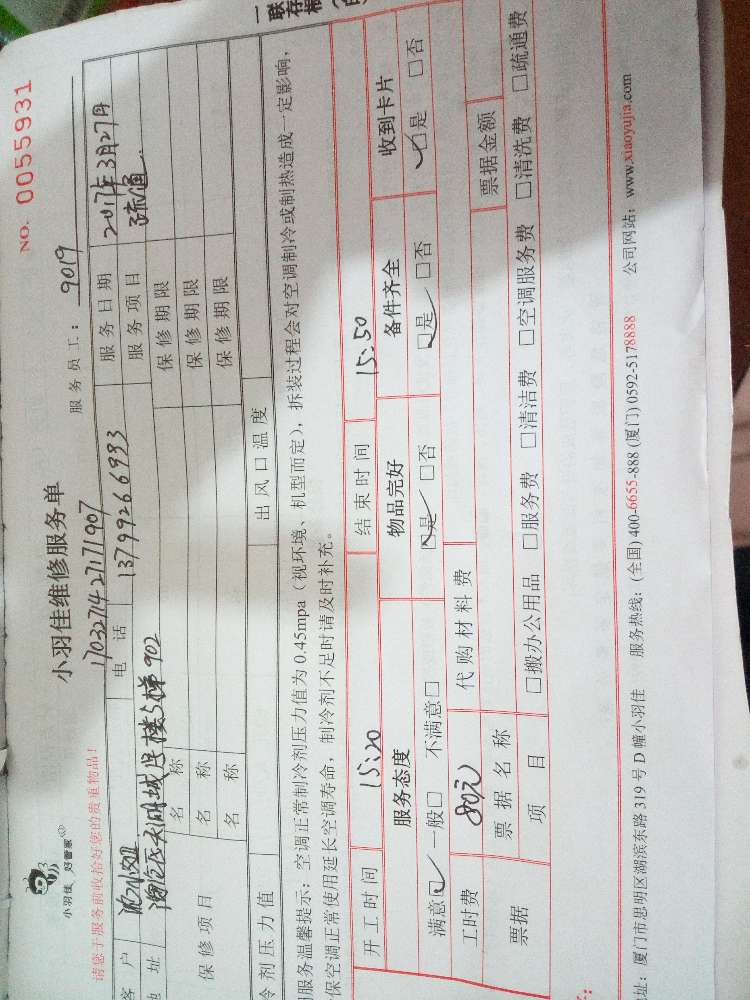 NO. 0055931
小羽佳 好管家
小羽佳维修服务单
服务员工： 9019
请您于服务前收拾好您的贵重物品！
1703271427171907
客户
电话 13799266993
服务日期 2017年3月27日
地址
902
服务项目 疏通
保修项目
名称 保修期限
名称 保修期限
名称 保修期限
冷剂压力值 出风口温度
服务温馨提示：空调正常制冷剂压力值为0.45mpa（视环境、机型而定），拆装过程会对空调制冷或制热造成一定影响，
保空调正常使用延长空调寿命，制冷剂不足时请及时补充。
开工时间 15:20 结束时间 15:50
服务态度 物品完好 备件齐全 收到卡片
满意☑ 一般□ 不满意□ ☑是 □否 ☑是 □否 ☑是 □否
工时费 80元 代购材料费
票据 票据名称 票据金额
项目 □搬办公用品 □服务费 □清洁费 □空调服务费 □清洗费 □疏通费
地址：厦门市思明区湖滨东路319号D幢小羽佳 服务热线：(全国) 400-6655-888 (厦门) 0592-5178888 公司网站：www.xiaoyujia.com
一联
存根